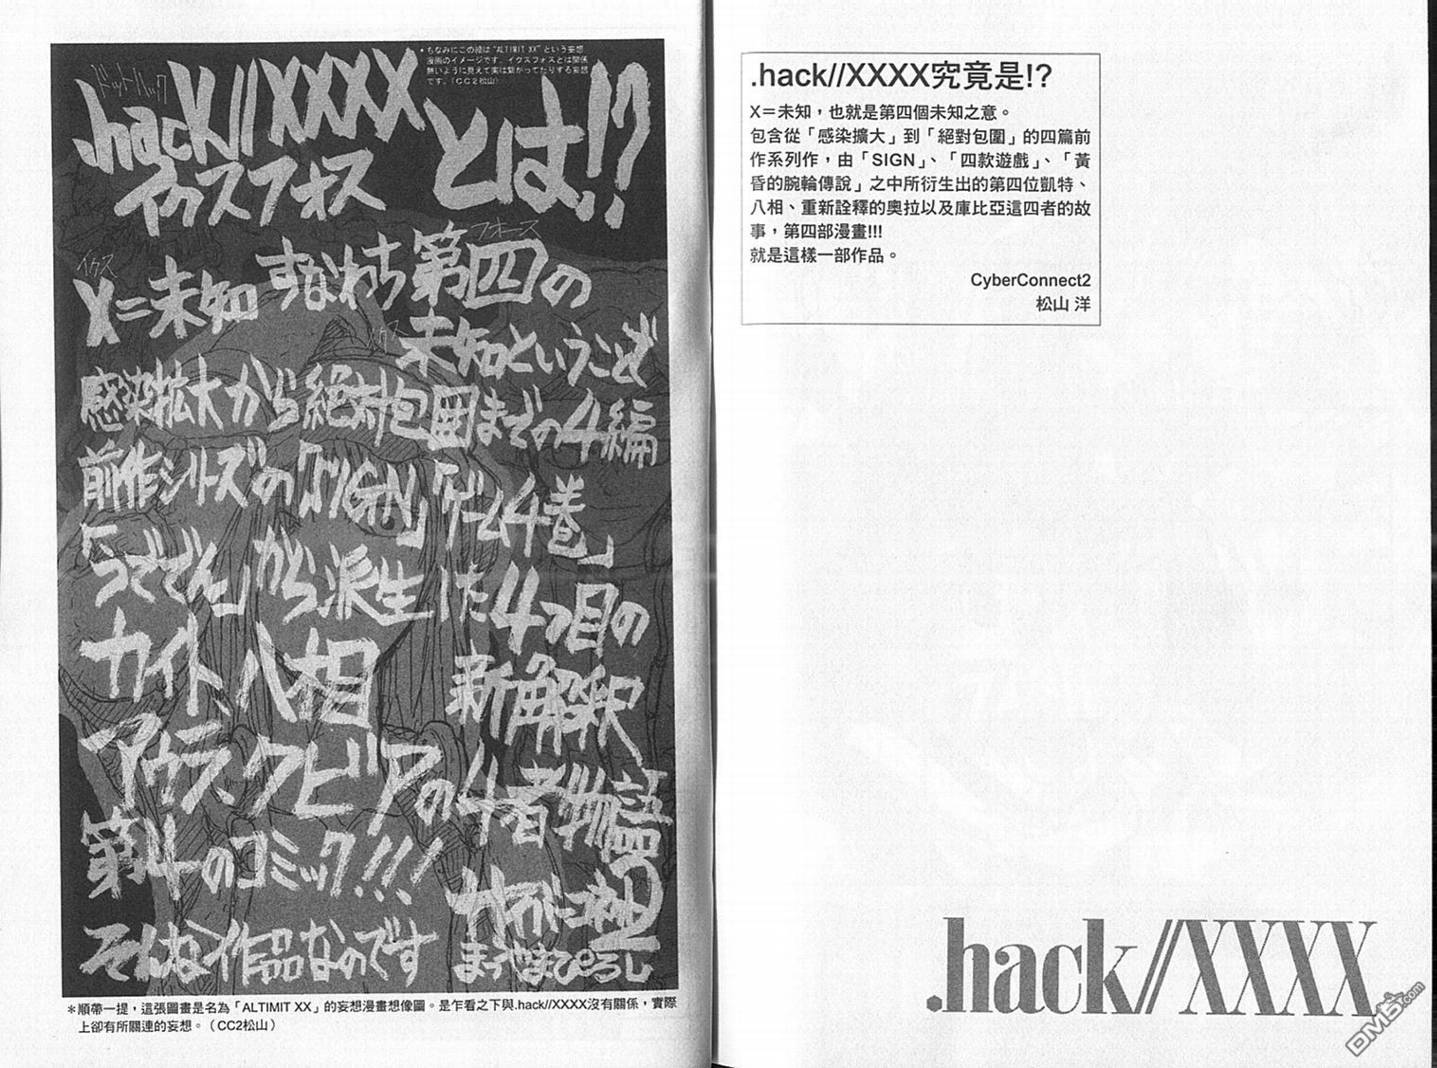 ・ちなみにこの絵は"ALTIMIT XX"という妄想
漫画のイメージです。イクスフォスとは関係
無いように見えて実は繋がってたりする妄想
です。(CC2松山)
ドットハック
.hack//XXXX とは!?
イクスフォス
イクス
フォース
X=未知 すなわち第四の
イクス
未知ということで
感染拡大から絶対包囲までの4編
前作シリーズの「SIGN」「ゲーム4巻」
「うででん」から派生した4つ目の
カイト、八相
新解釈
アウラ、クビアの4者物語
第4のコミック!!!
サイバーコネクト2
そんな作品なのです まつやまひろし
＊順帶一提，這張圖畫是名為「ALTIMIT XX」的妄想漫畫想像圖。是乍看之下與.hack//XXXX沒有關係，實際
上卻有所關連的妄想。（CC2松山）
.hack//XXXX究竟是!?
X＝未知，也就是第四個未知之意。
包含從「感染擴大」到「絕對包圍」的四篇前
作系列作，由「SIGN」、「四款遊戲」、「黃
昏的腕輪傳說」之中所衍生出的第四位凱特、
八相、重新詮釋的奧拉以及庫比亞這四者的故
事，第四部漫畫!!!
就是這樣一部作品。
CyberConnect2
松山 洋
.hack//XXXX
DM5.com